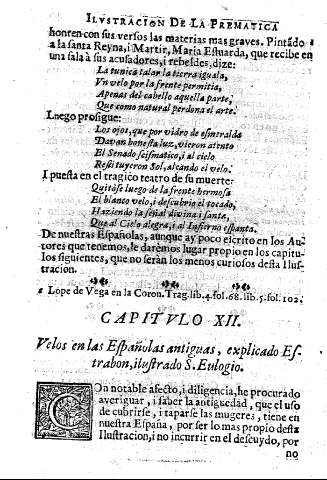 ILVSTRACION DE LA PREMATICA
honren con sus versos las materias mas graves. Pintãdo
a la santa Reyna, i Martir, Maria Estuarda, que recibe en
una sala à sus acusadores, i rebeldes, dize:
La tunica talar la tierra iguala,
Vn velo por la frente permitia,
Apenas del cabello aquella parte,
Que como natural perdona el arte.
Luego prosigue:
Los ojos, que por vidro de esmeralda
Davan honesta luz, vieron atento
El Senado scismatico, i al cielo
Restituyeron Sol, alcando el velo.
I puesta en el tragico teatro de su muerte:
Quitòse luego de la frente hermosa
El blanco velo, i descubrio el tocado,
Haziendo la señal divina i santa,
Que al Cielo alegra, i al Infierno espanta.
De nuestras Españolas, aunque ay poco escrito en los Au-
tores que tenemos, le darèmos lugar propio en los capitu-
los siguientes, que no seràn los menos curiosos desta Ilus-
tracion.
a Lope de Vega en la Coron. Trag. lib. 4. fol. 68. lib. 5. fol. 102.
CAPITVLO XII.
Velos en las Españolas antiguas, explicado Es-
trabon, ilustrado S. Eulogio.
CON notable afecto, i diligencia, he procurado
averiguar, i saber la antiguedad, que el uso
de cubrirse, i taparse las mugeres, tiene en
nuestra España, por ser lo mas propio desta
Ilustracion, i no incurrir en el descuydo, por
no